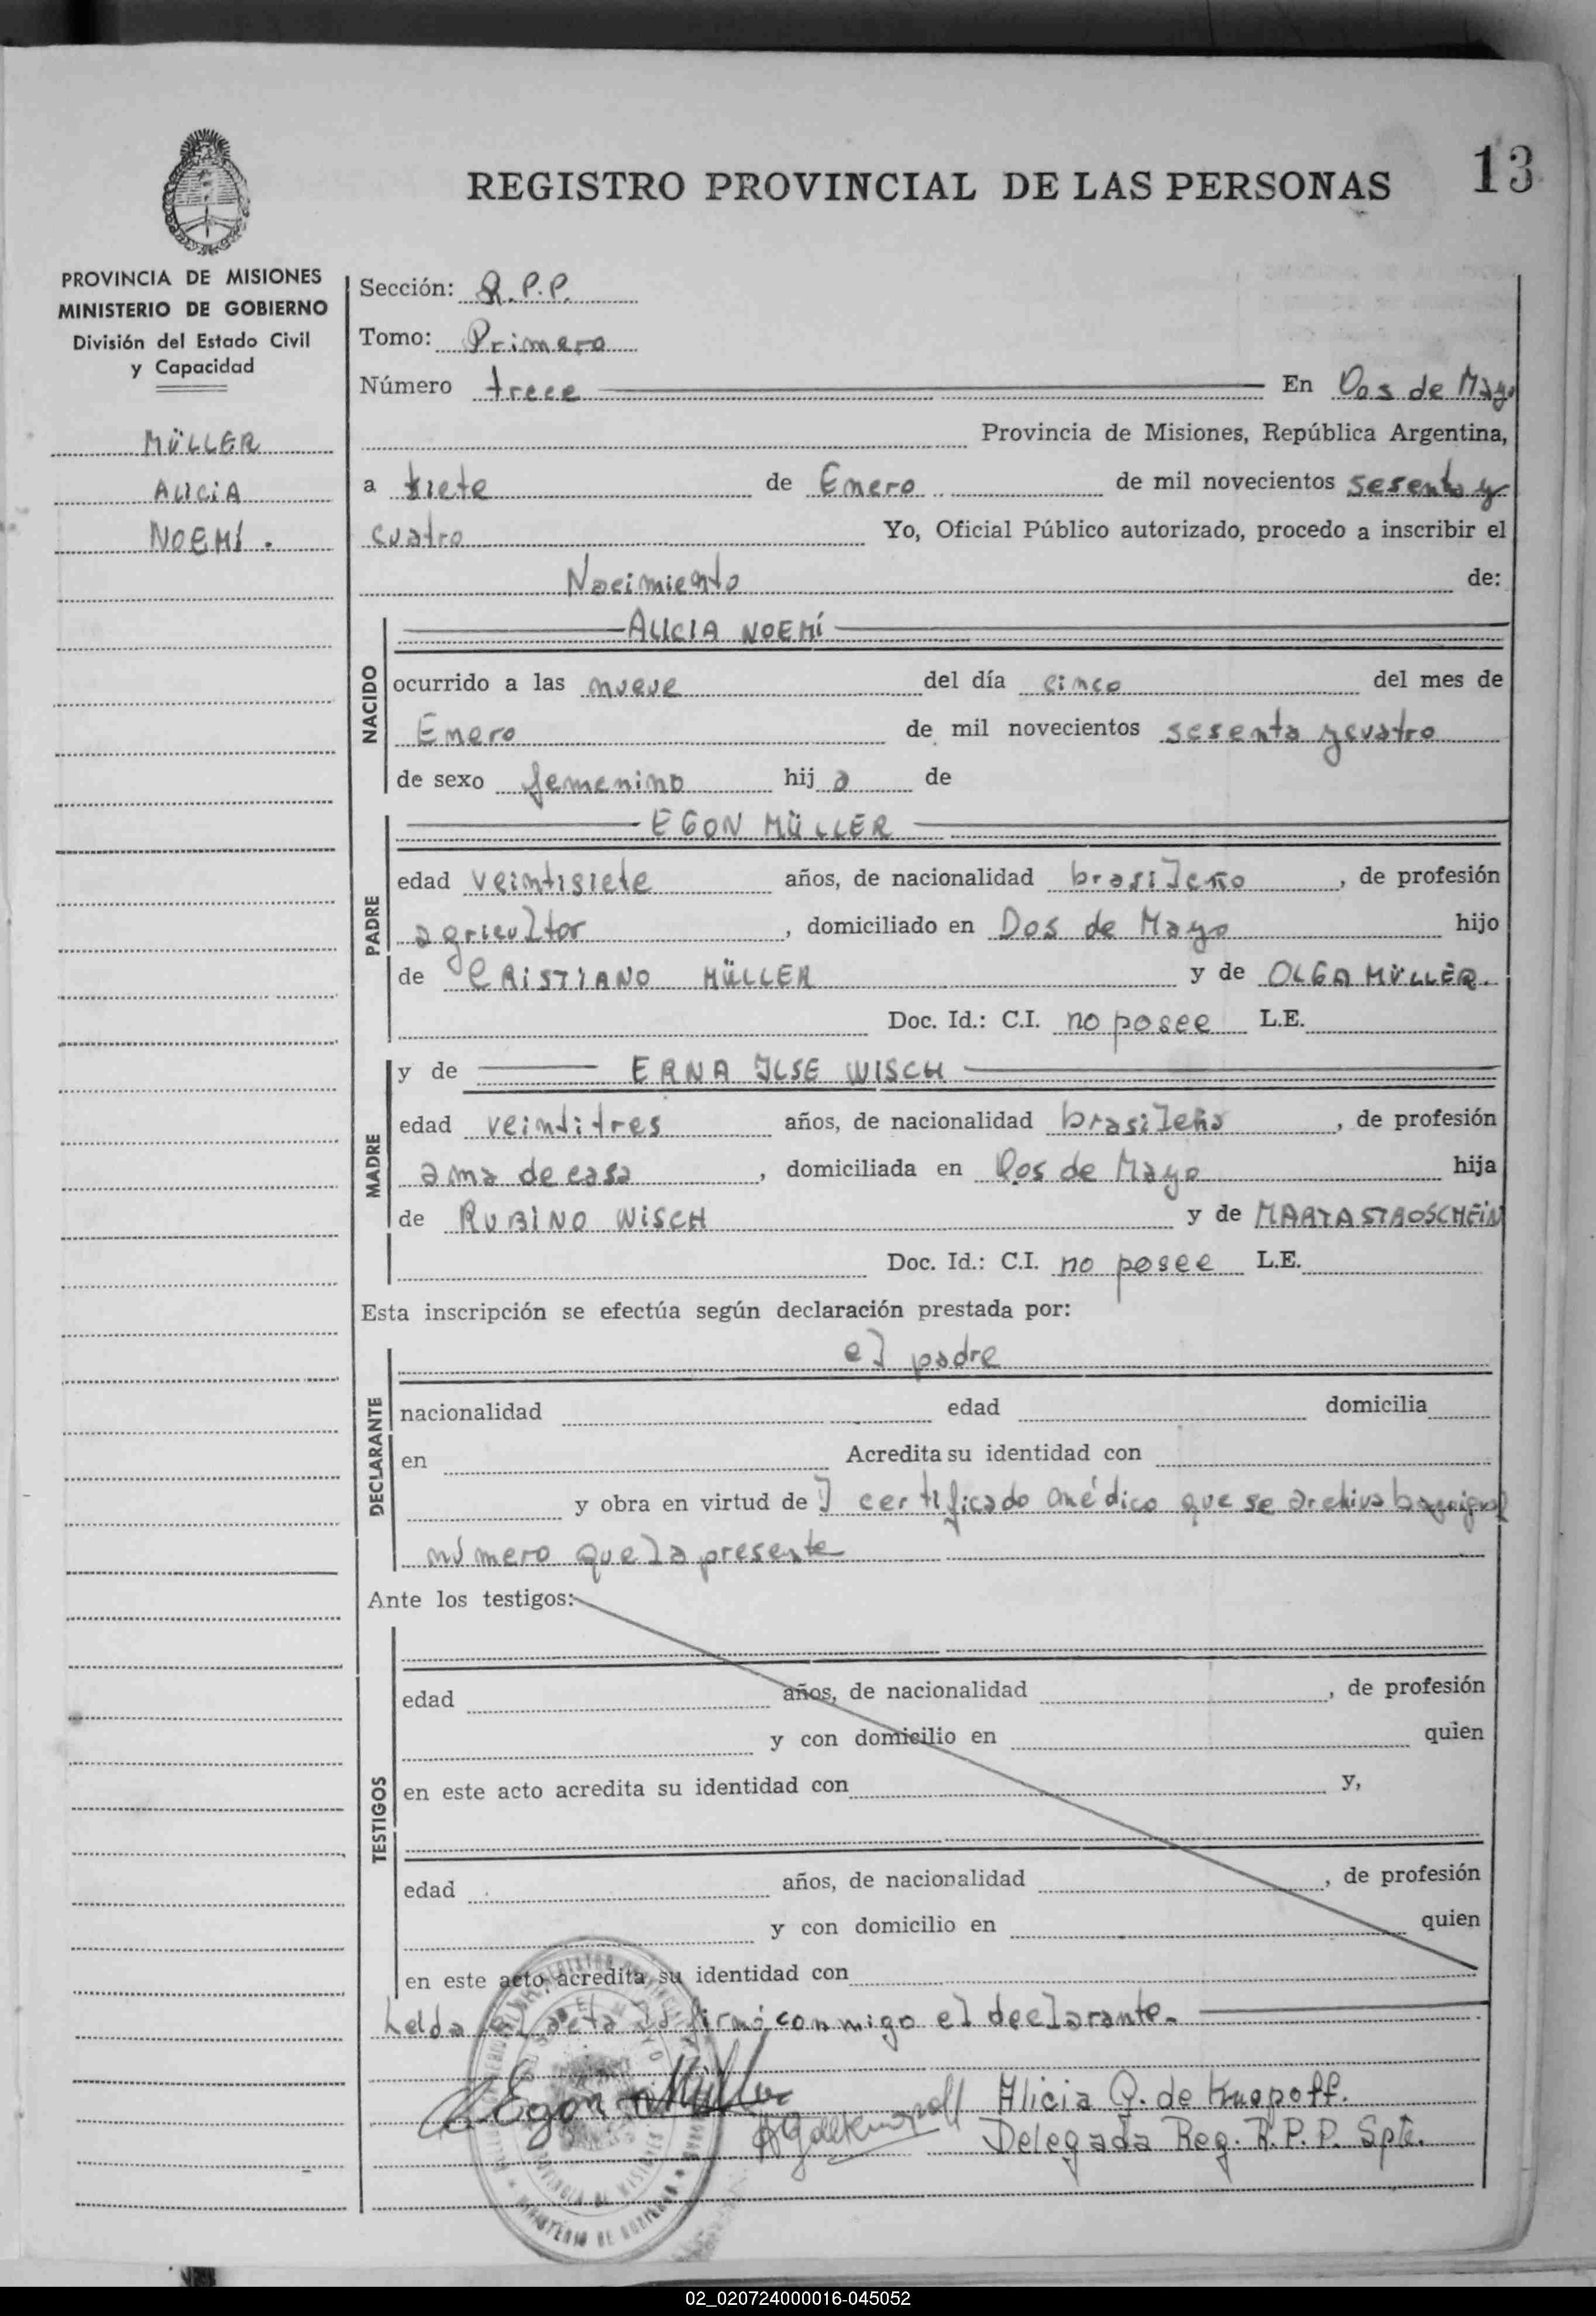 REGISTRO PROVINCIAL DE LAS PERSONAS
13
PROVINCIA DE MISIONES
MINISTERIO DE GOBIERNO
División del Estado Civil
y Capacidad
MÜLLER
ALICIA
NOEMÍ.
Sección: R.P.P.
Tomo: Primero
Número trece En Dos de Mayo
Provincia de Misiones, República Argentina,
a siete de Enero de mil novecientos sesenta y
cuatro Yo, Oficial Público autorizado, procedo a inscribir el
Nacimiento de:
NACIDO
ALICIA NOEMÍ
ocurrido a las nueve del día cinco del mes de
Enero de mil novecientos sesenta y cuatro
de sexo femenino hij a de
PADRE
EGON MÜLLER
edad veintisiete años, de nacionalidad brasileño, de profesión
agricultor, domiciliado en Dos de Mayo hijo
de CRISTIANO MÜLLER y de OLGA MÜLLER.
Doc. Id.: C.I. no posee L.E.
MADRE
y de ERNA ILSE WISCH
edad veintitres años, de nacionalidad brasileña, de profesión
ama de casa, domiciliada en Dos de Mayo hija
de RUBINO WISCH y de MARTA STROSCHEIN
Doc. Id.: C.I. no posee L.E.
Esta inscripción se efectúa según declaración prestada por:
DECLARANTE
el padre
nacionalidad edad domicilia
en Acredita su identidad con
y obra en virtud de l certificado médico que se archiva bajo igual
número que la presente
Ante los testigos:
TESTIGOS
edad años, de nacionalidad , de profesión
y con domicilio en quien
en este acto acredita su identidad con y,
edad años, de nacionalidad , de profesión
y con domicilio en quien
en este acto acredita su identidad con
Leída el acta la firmó conmigo el declarante.
Egon Müller
Alicia G. de Knopoff.
Delegada Reg. R.P.P. Spte.
PROVINCIA DE MISIONES
MINISTERIO DE GOBIERNO
02_020724000016-045052